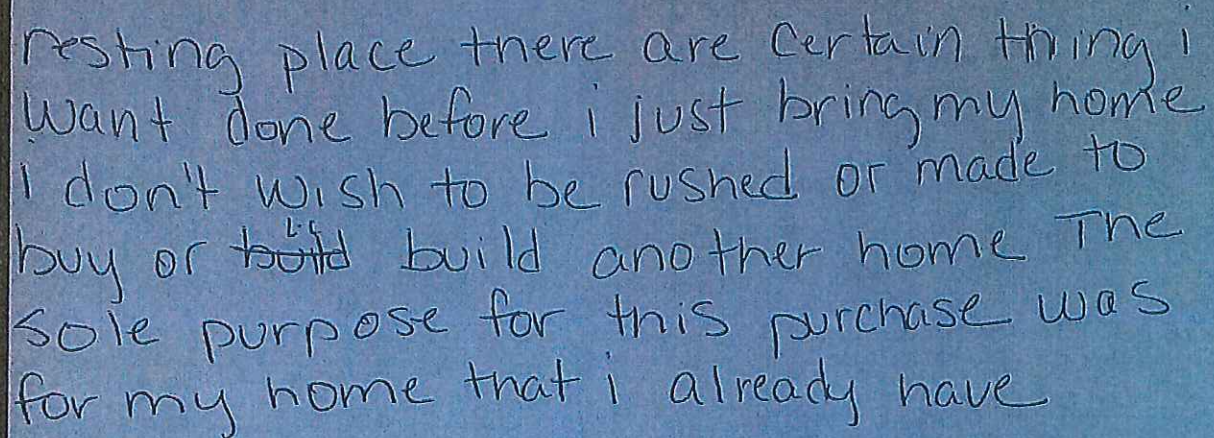 resting place there are certain thing i
want done before i just bring my home
i don't wish to be rushed or made to
buy or build another home The
sole purpose for this purchase was
for my home that i already have